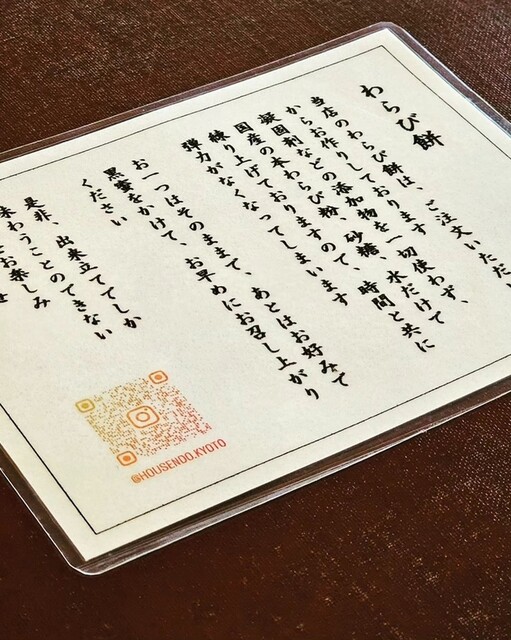 わらび餅
当店のわらび餅は、ご注文いただい
からお作りしております
凝固剤などの添加物を一切使わず、
国産の本わらび粉、砂糖、水だけで
練り上げておりますので、時間と共に
弾力がなくなってしまいます
お一つはそのままで、あとはお好みで
黒蜜をかけて、お早めにお召し上がり
ください
是非、出来立てでしか
味わうことのできない
お楽しみ
@HOUSENDO.KYOTO